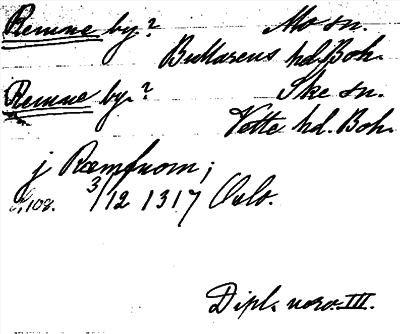 Remne by? Mo sn.
Bullarens hd. Boh.
Remne by? Ske sn.
Vette hd. Boh.
j Ræmfnom;
s. 102. 3/12 1317 Oslo.
Dipl. norv. III.